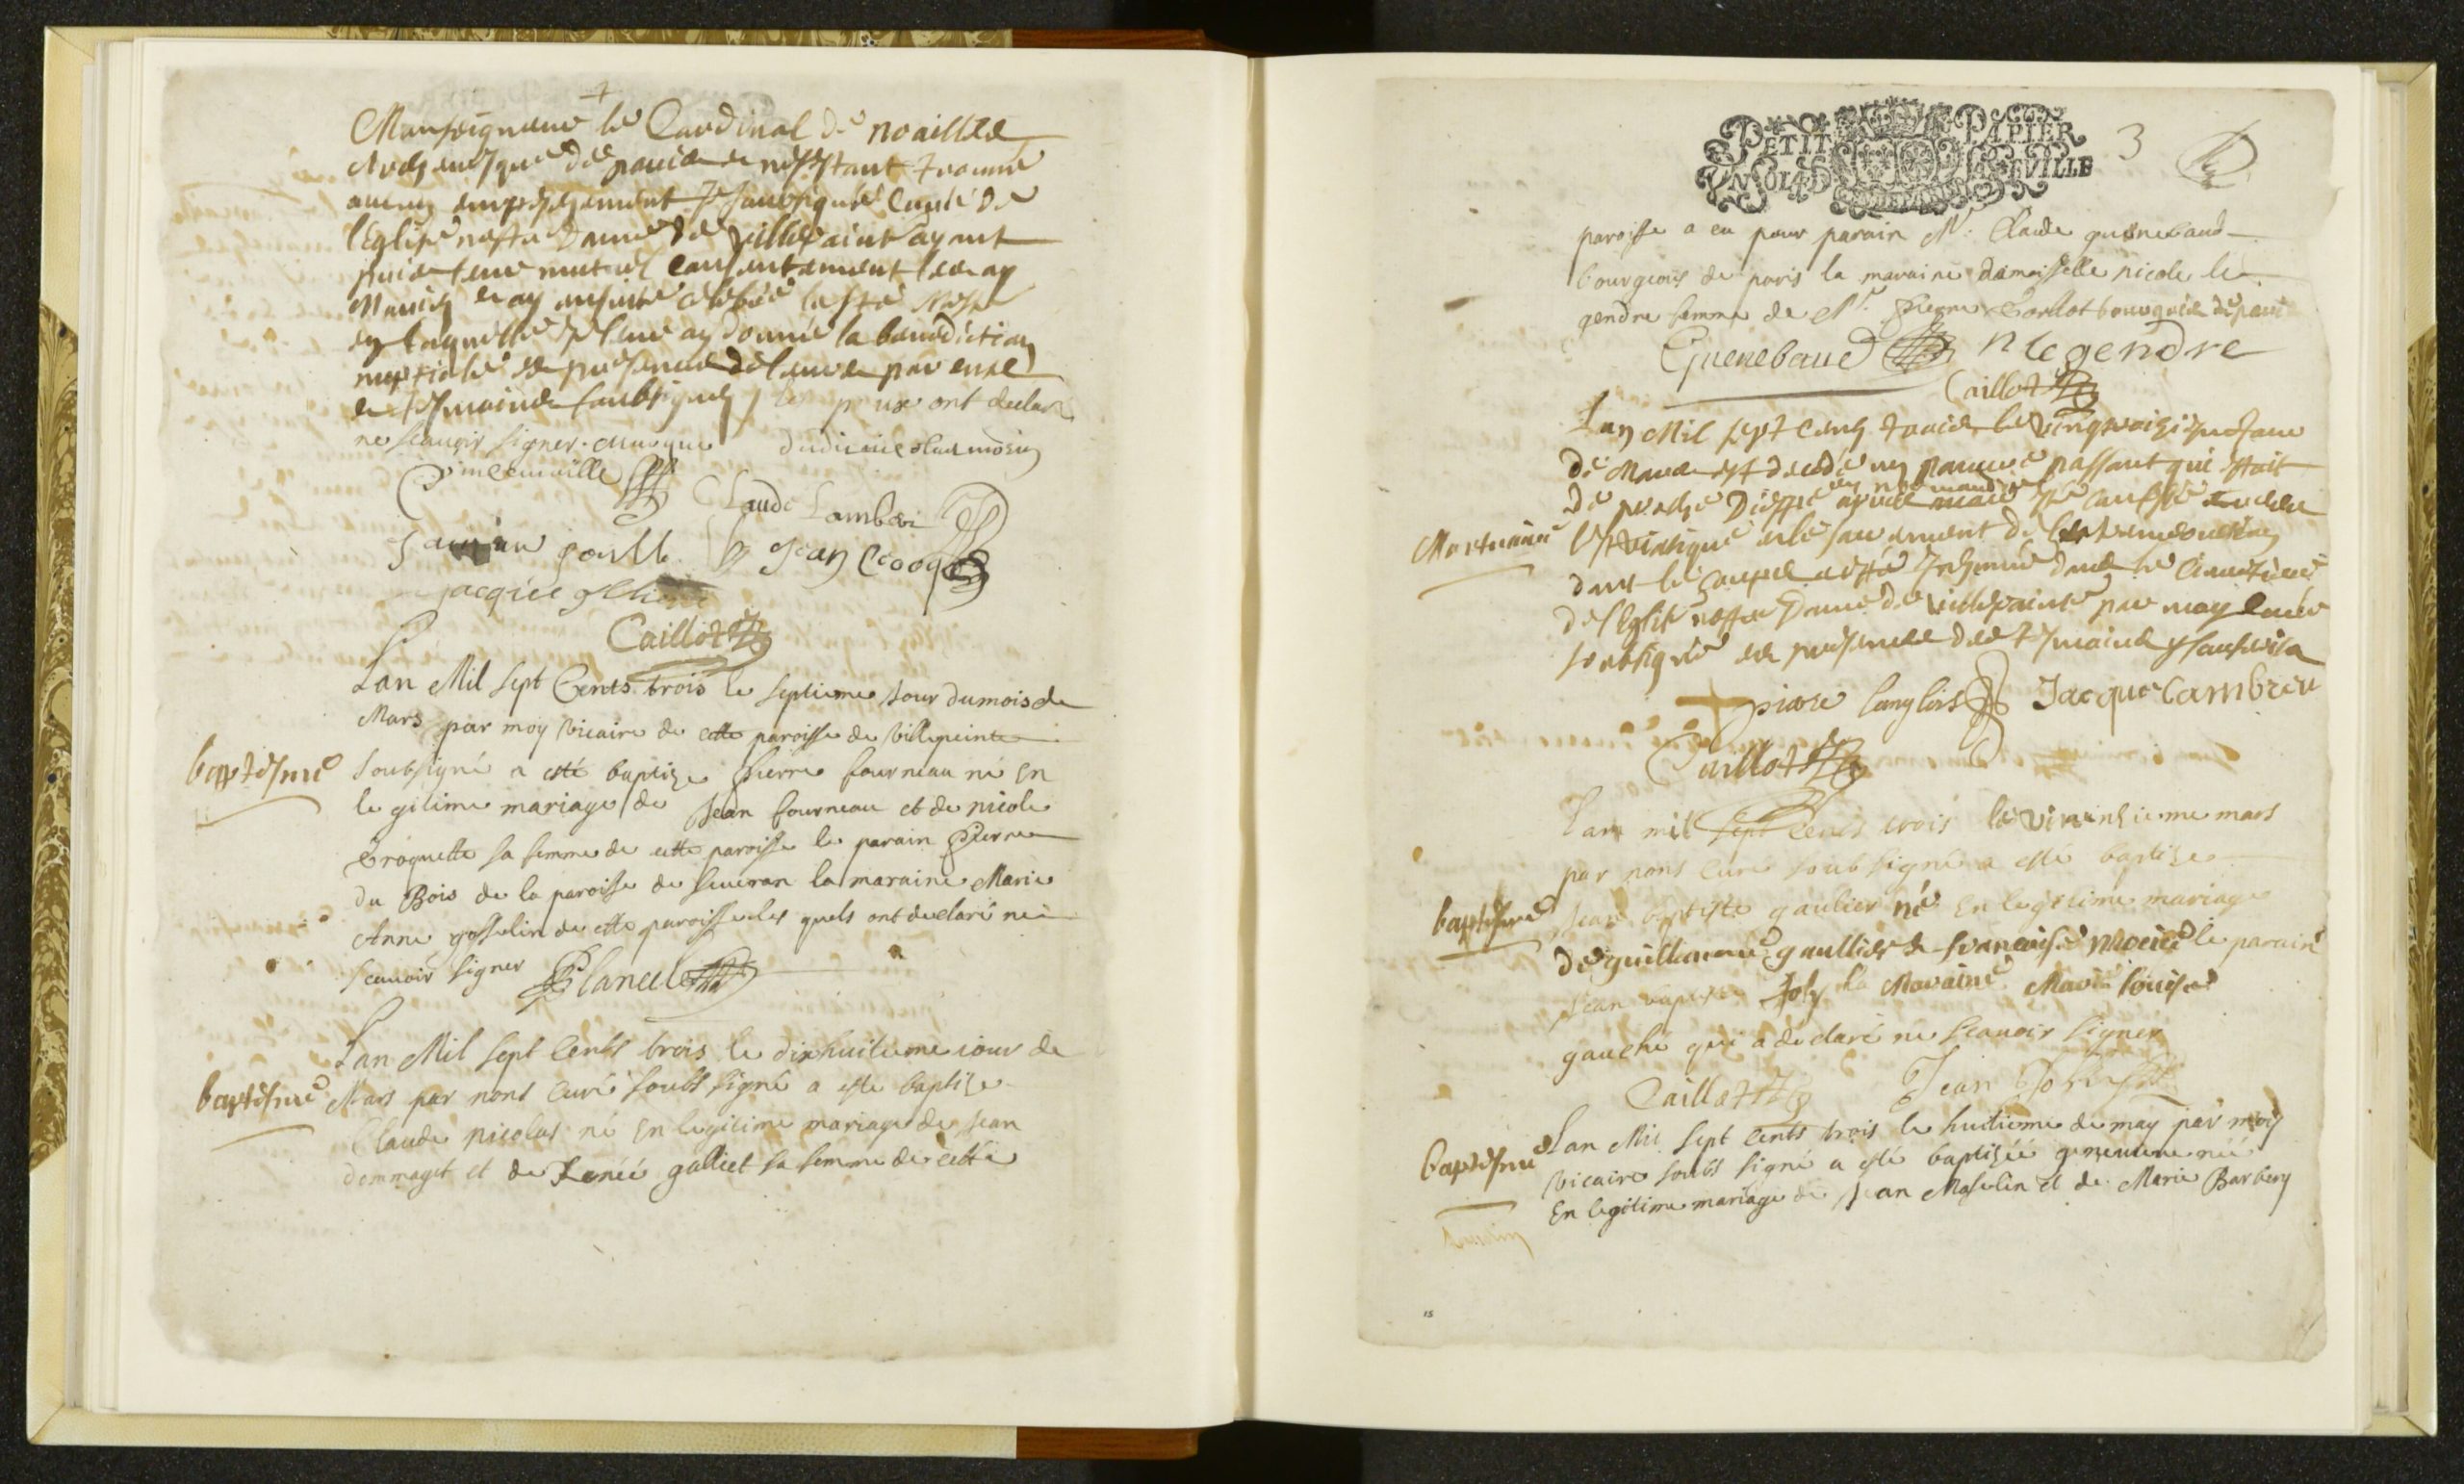 Monseigneur le Cardinal de noailles
Archevesque de paris et ne s'estant trouvé
aucun empeschement Je soubsigné Curé de
l'Eglise nostre Dame de Villepainte ayant
pris leur mutuel consentement les ay
Mariés et ay ensuite celebré la ste Messe
en laquelle Je leur ay donné la benediction
nuptiale en presence de leurs parens
et tesmoins soubsignes les ont declaré
ne scauoir signer
Claude Lambert
Jean
jacques
Caillot
Lan Mil sept Cents trois le septieme Jour du mois de
Mars par moy vicaire de cette paroisse de villepeinte
baptesme
soubsigné a esté baptize Pierre fourneau né En
legitime mariage de Jean fourneau et de nicole
croquette sa femme de cette paroisse le parain Pierre
du Bois de la paroisse de seuran la maraine Marie
Anne gosselin de cette paroisse les quels ont declaré ne
scauoir signer Plancel
Lan Mil sept Cents trois le dixhuitieme iour de
baptesme
Mars par nous Curé soubs signé a este baptize
Claude nicolas né En legitime mariage de Jean
dommaget et de Renée galliet sa femme de cette
PETIT PAPIER
UN SOL
3
paroisse a eu pour parain Mr. Claude guenebaud
bourgeois de paris la maraine damoisselle nicole le
gendre femme de Mr. Pierre bourgeois de paris
Guenebaud n legendre
Caillot
Lan Mil sept Cents trois le vingtroisiesme Jour
de Mars est decedé un pauure passant qui estoit
de proche Dieppe en normandie apres auoir esté confessé
Mortuaire
le st Viatique et le sacrement de
dans le corps a esté Inhumé dans le Cimetiere
de l'Eglise nostre Dame de Villepainte par moy Curé
soubsigné en presence des tesmoins
piere langlois Jacque Lambreu
Caillot
Lan mil sept Cents trois le mars
par nous Curé soubsigné a esté baptize
baptesme
Jean baptiste gaulier né En legitime mariage
de guillaume gaullier et francoise le parain
Jean baptiste Joly la Maraine Marie louise
gauché qui a declaré ne scauoir signer
Caillot Jean Joly
baptesme
Lan Mil sept Cents trois le huitieme de may par moy
vicaire soubs signé a esté baptisée geneuieue née
En legitime mariage de Jean Maselin et de Marie Barbery
15